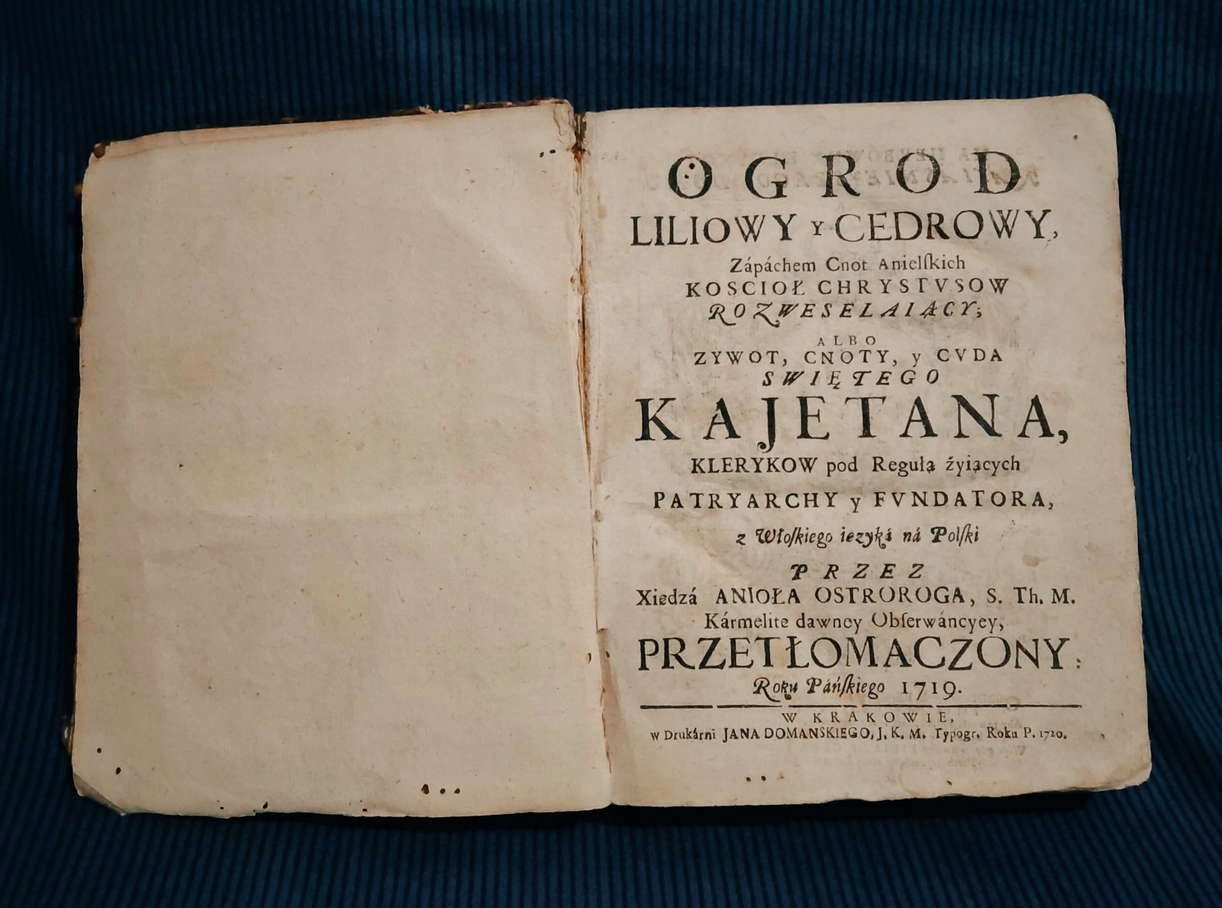 OGROD
LILIOWY Y CEDROWY,
Zápáchem Cnot Anielſkich
KOSCIOŁ CHRYSTVSOW
ROZWESELAIĄCY;
ALBO
ZYWOT, CNOTY, y CVDA
SWIĘTEGO
KAJETANA,
KLERYKOW pod Regułą źyiących
PATRYARCHY y FVNDATORA,
z Włoſkiego ięzyká ná Polſki
PRZEZ
Xiędzá ANIOŁA OSTROROGA, S. Th. M.
Kármelitę dawney Obſerwáncyey,
PRZETŁOMACZONY:
Roku Páńſkiego 1719.
W KRAKOWIE,
w Drukárni JANA DOMANSKIEGO, J. K. M. Typogr. Roku P. 1720.